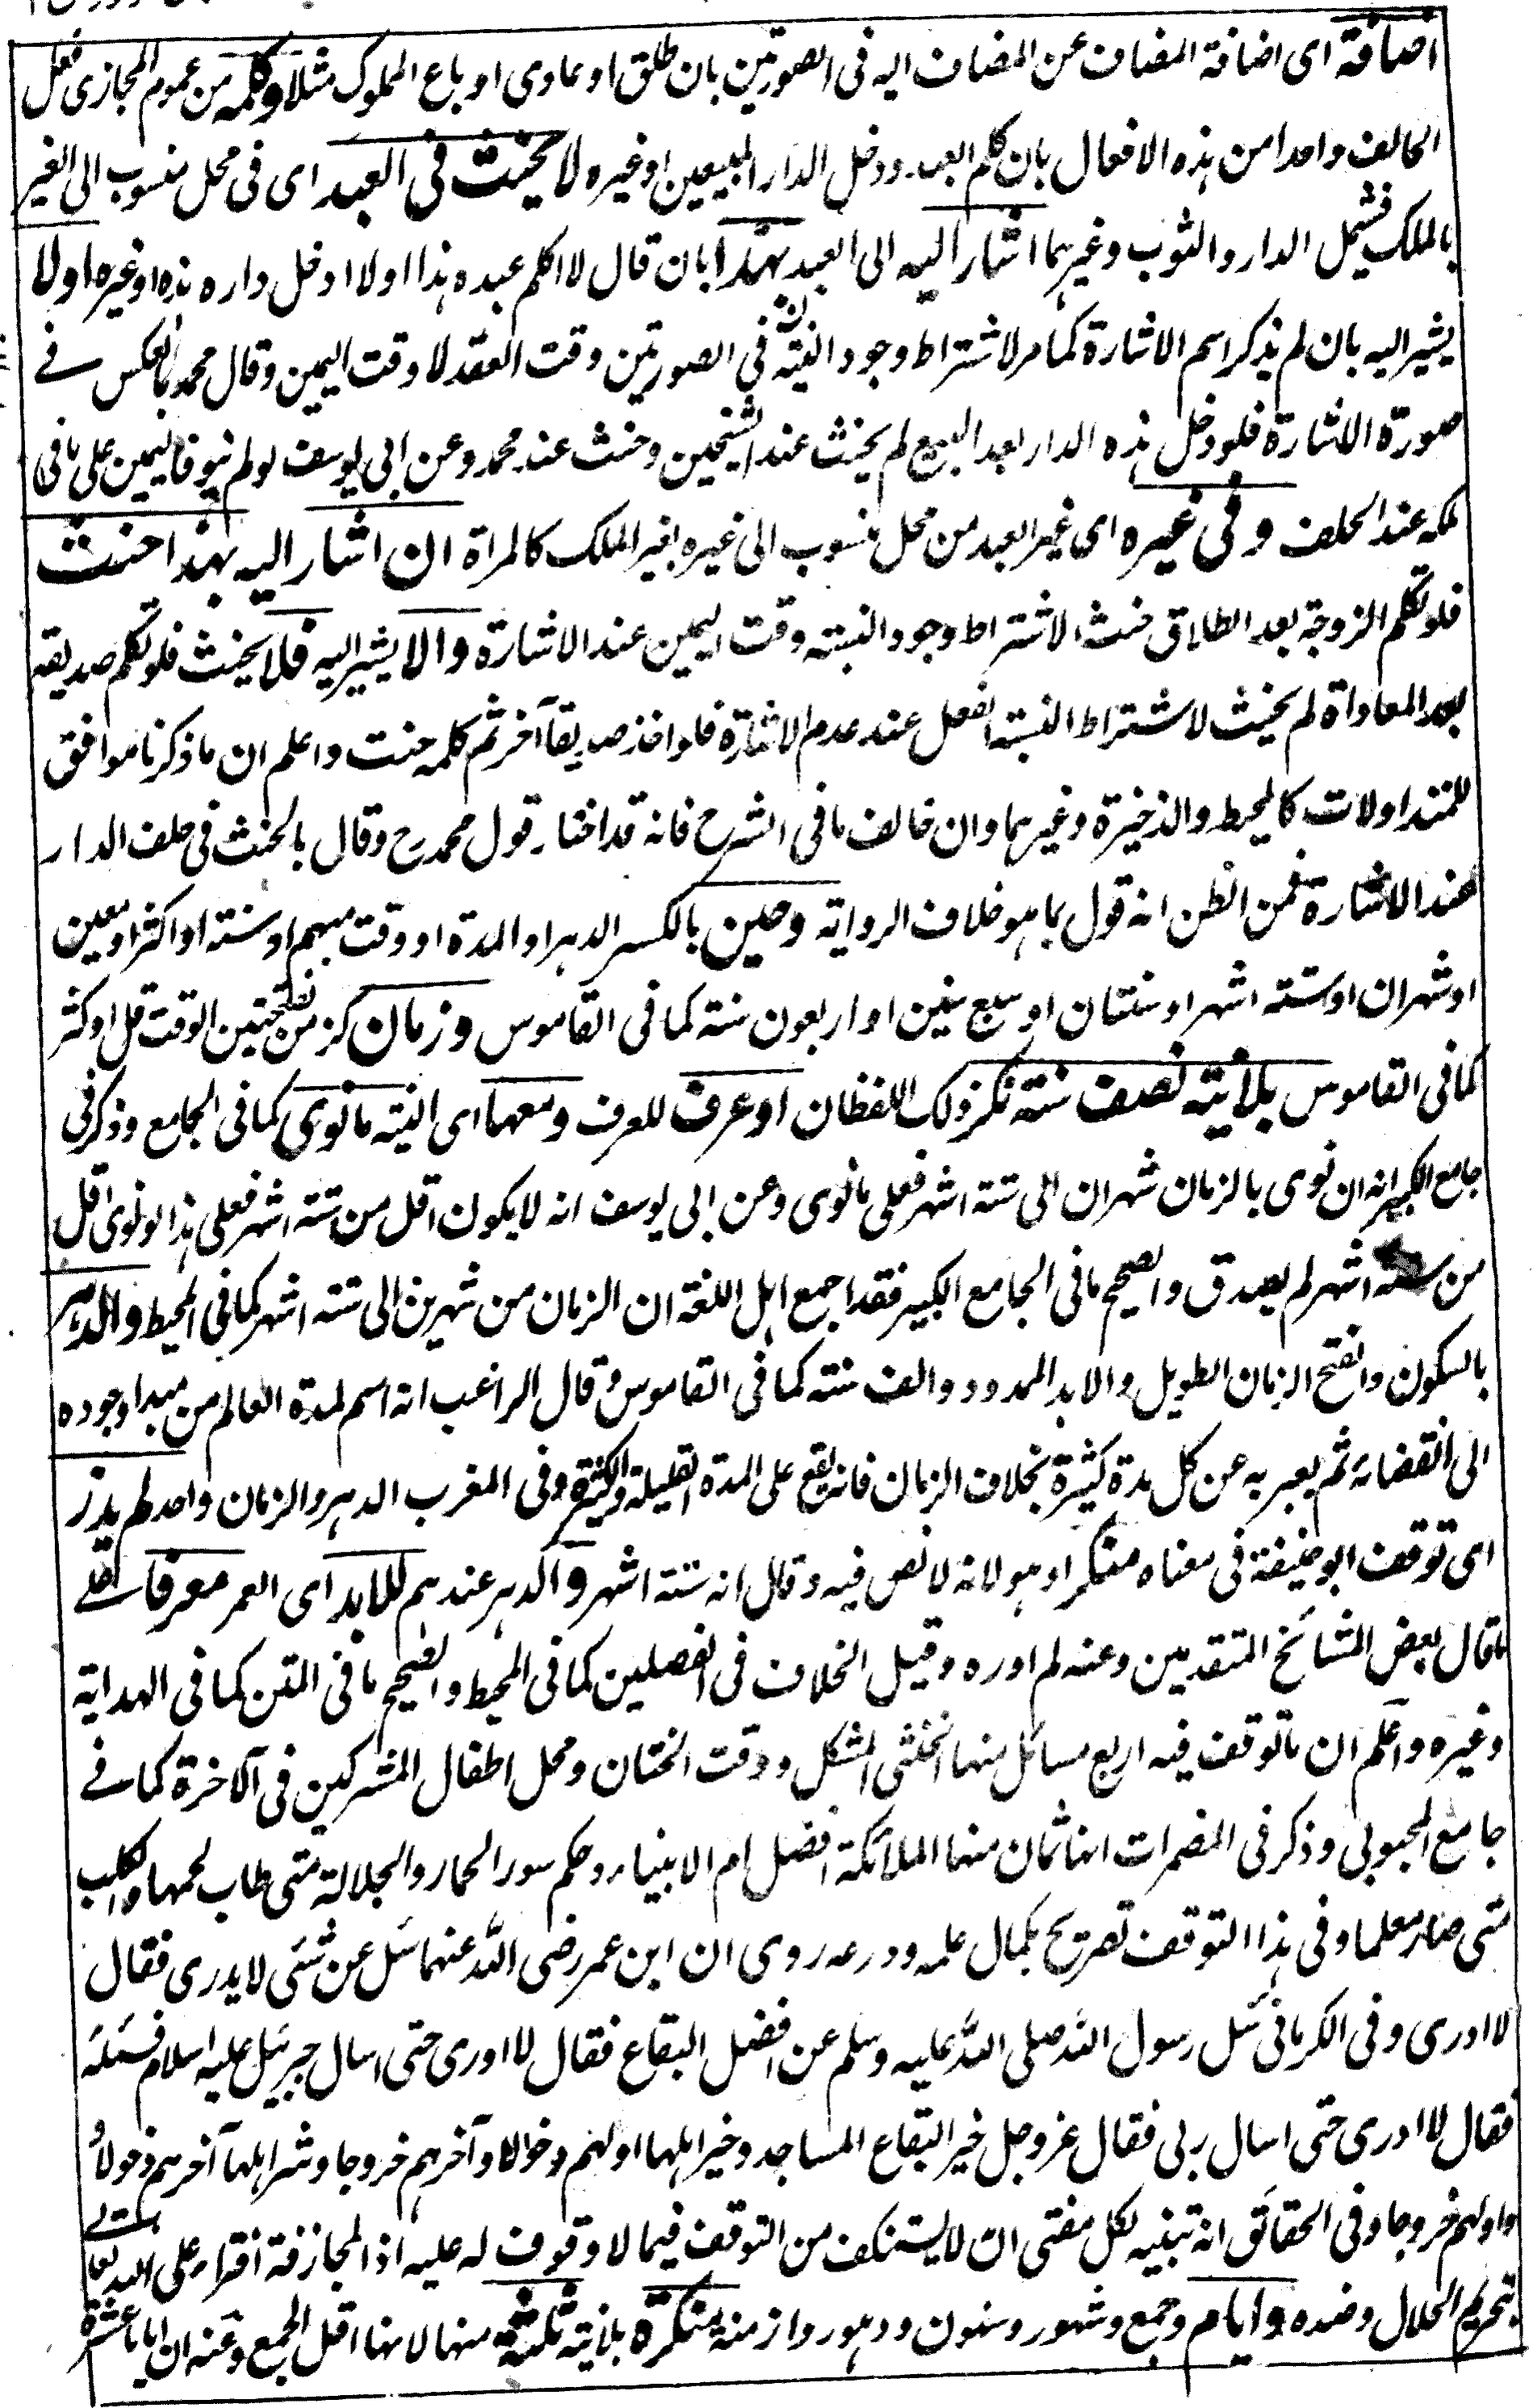 اضافة اى اضافة المضاف عن المضاف اليه فى الصورتين بان طلق او عادى او باع المملوك مثلا وكلمه من عموم المجازى فعل
الحالف واحدا من هذه الافعال بان كلم العبد ودخل الدار المبيعين او غيره لا يحنث فى العبد اى فى محل منسوب الى الغير
بالملك فيشمل الدار والثوب وغيرهما اشار اليه الى العبد بهذا بان قال لا اكلم عبده هذا او لا ادخل داره هذه او غيره اولا
يشير اليه بان لم يذكر اسم الاشارة كما مر لاشتراط وجود النسبة فى الصورتين وقت العقد لا وقت اليمين وقال محمد بالعكس فے
صورة الاشارة فلو دخل هذه الدار بعد البيع لم يحنث عند الشيخين وحنث عند محمد وعن ابى يوسف لو لم ينو فاليمين على ما فى
ملكه عند الحلف وفى غيره اى غير العبد من محل منسوب الى غيره بغير الملك كالمراة ان اشار اليه بهذا حنث
فلو تكلم الزوجة بعد الطلاق حنث لاشتراط وجود النسبة وقت اليمين عند الاشارة والا يشير اليه فلا يحنث فلو تكلم صديقه
بعد المعاداة لم يحنث لاشتراط النسبة لفعل عند عدم الاشارة فلو اخذ صديقا آخر ثم كلمه حنث واعلم ان ما ذكرنا موافق
للمتداولات كالمحيط والذخيرة وغيرهما وان خالف ما فى الشرح فانه قد اختار قول محمد رح وقال بالحنث فى حلف الدار
عند الاشارة فمن الظن انه قول بما هو خلاف الرواية وحين بالكسر الدهر او المدة او وقت مبهم او سنة او اكثر او معين
او شهران او ستة اشهر او سنتان او سبع سنين او اربعون سنة كما فى القاموس وزمان كزمن بفتحتين الوقت قل او كثر
كما فى القاموس بلا نية نصف سنة نكر ذلك اللفظان او عرف للعرف ومعها اى النية ما نوى كما فى الجامع وذكر فى
جامع الكبير انه ان نوى بالزمان شهران الى ستة اشهر فعلى ما نوى وعن ابى يوسف انه لا يكون اقل من ستة اشهر فعلى هذا لو نوى اقل
من ستة اشهر لم يصدق والصحيح ما فى الجامع الكبير فقد اجمع اهل اللغة ان الزمان من شهرين الى ستة اشهر كما فى المحيط والدهر
بالسكون والفتح الزمان الطويل والابد الممدود والف سنة كما فى القاموس وقال الراغب انه اسم لمدة العالم من مبدا وجوده
الى انقضائه ثم يعبر به عن كل مدة كثيرة بخلاف الزمان فانه يقع على المدة القليلة والكثيرة وفى المغرب الدهر والزمان واحد لم يدر
اى توقف ابو حنيفة فى معناه منكرا وهو لانه لا نص فيه وقال انه ستة اشهر والدهر عندهم للابد اى العمر معرفا على
ما قال بعض المشائخ المتقدمين وعنه لم ادره وقيل الخلاف فى الفصلين كما فى المحيط والصحيح ما فى المتن كما فى الهداية
وغيره واعلم ان ما توقف فيه اربع مسائل منها الخنثى المشكل ووقت الختان ومحل اطفال المشركين فى الآخرة كما فے
جامع المحبوبى وذكر فى المضمرات انها ثمان منها الملائكة افضل ام الانبياء وحكم سور الحمار والجلالة متى طاب لحمها والكلب
متى صار معلما وفى هذا التوقف تصريح بكمال علمه وورعه روى ان ابن عمر رضى الله عنهما سئل عن شئى لا يدرى فقال
لا ادرى وفى الكرمانى سئل رسول الله صلى الله عليه وسلم عن افضل البقاع فقال لا ادرى حتى اسال جبرئيل عليه السلام فسئله
فقال لا ادرى حتى اسال ربى فقال عزوجل خير البقاع المساجد وخير اهلها اولهم دخولا وآخرهم خروجا وشر اهلها آخرهم دخولا
واولهم خروجا وفى الحقائق انه تنبيه لكل مفتى ان لا يستنكف من التوقف فيما لا وقوف له عليه اذ المجازفة افتراء على الله تعالے
بتحريم الحلال وضده وايام وجمع وشهور وسنون ودهور وازمنة منكرة بلا نية ثلثة منها لانها اقل الجمع وعنه ان اياما عشرة